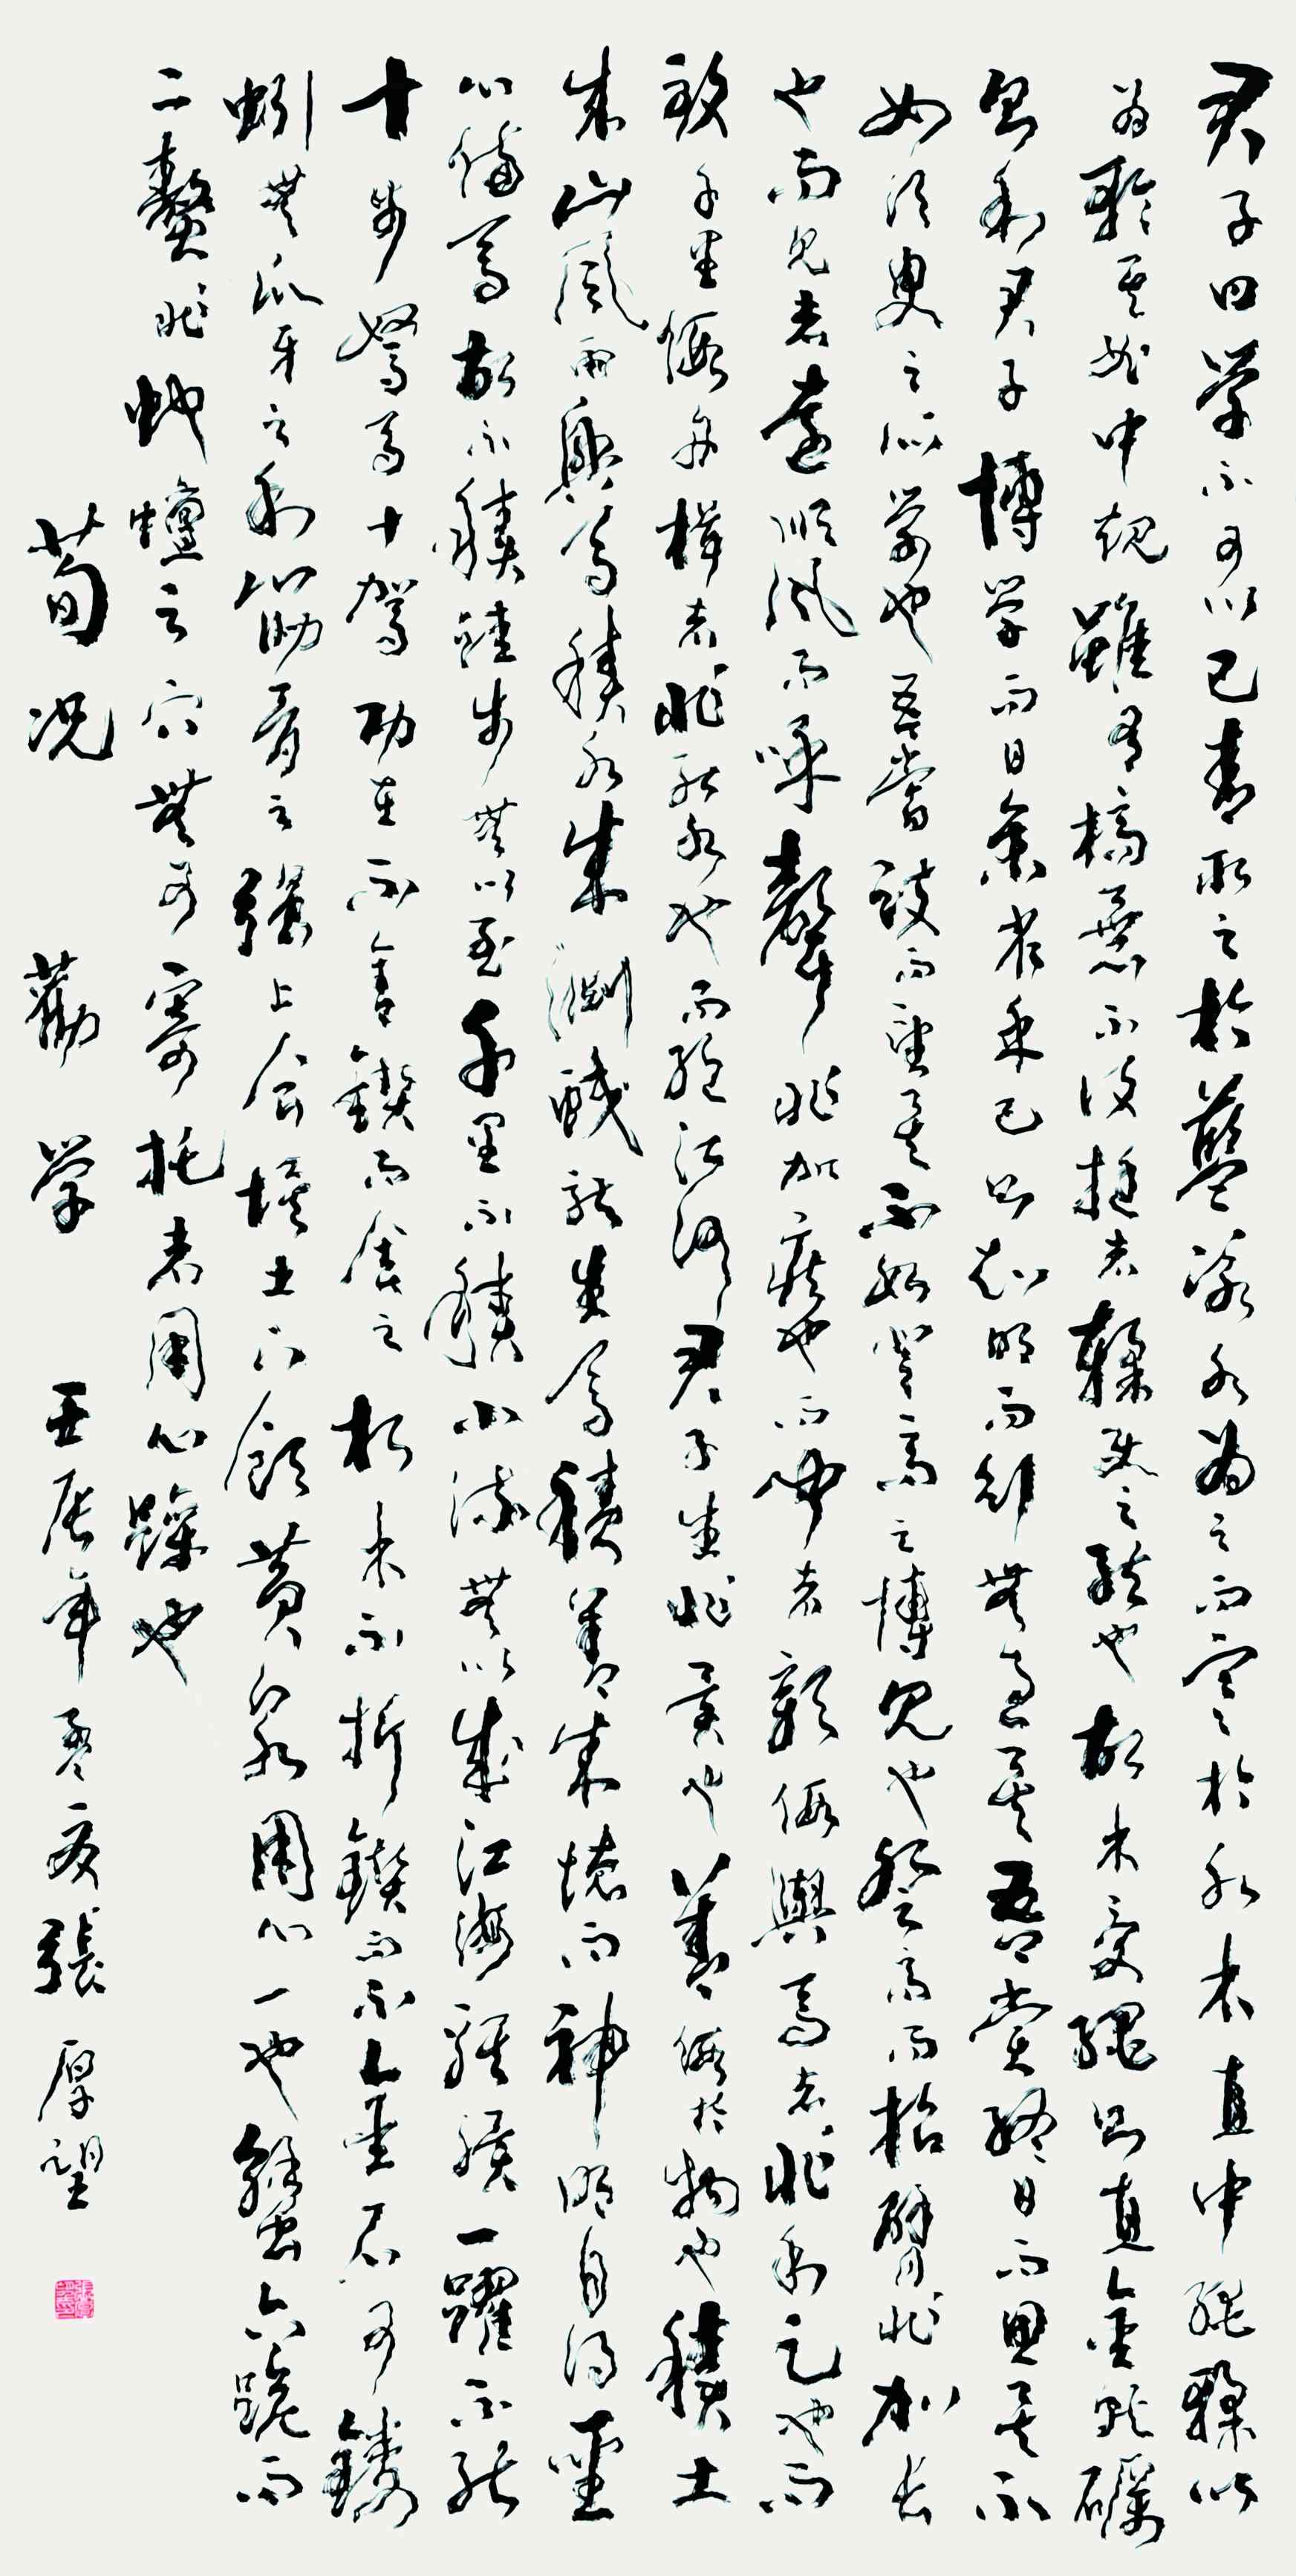 君子曰学不可以已青取之於藍冰水為之而寒於水木直中繩輮以
為輪其曲中規雖有槁暴不復挺者輮使之然也故木受繩則直金就礪
則利君子博学而日參省乎己則知明而行無過矣吾嘗終日而思矣不
如須臾之所学也吾嘗跂而望矣不如登高之博見也登高而招臂非加長
也而見者遠順風而呼聲非加疾也而聞者彰假輿馬者非利足也而
致千里假舟楫者非能水也而絕江河君子生非異也善假於物也積土
成山風雨興焉積水成淵蛟龍生焉積善成德而神明自得聖
心備焉故不積跬步無以至千里不積小流無以成江海騏驥一躍不能
十步駑馬十駕功在不舍鍥而舍之朽木不折鍥而不金石可鏤
蚓無爪牙之利筋骨之強上食埃土下飲黃泉用心一也蟹六跪而
二螯非蛇蟺之穴無可寄托者用心躁也
荀況 勸学 壬辰年孟夏張厚望